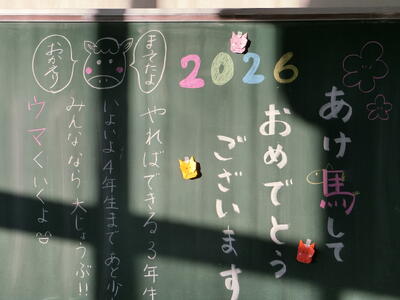 2026
あけ馬して
おめでとう
ございます
まてたよ
おかえり
やればできる3年生
いよいよ4年生まであと少
みんななら大じょうぶ!!
ウマくいくよ